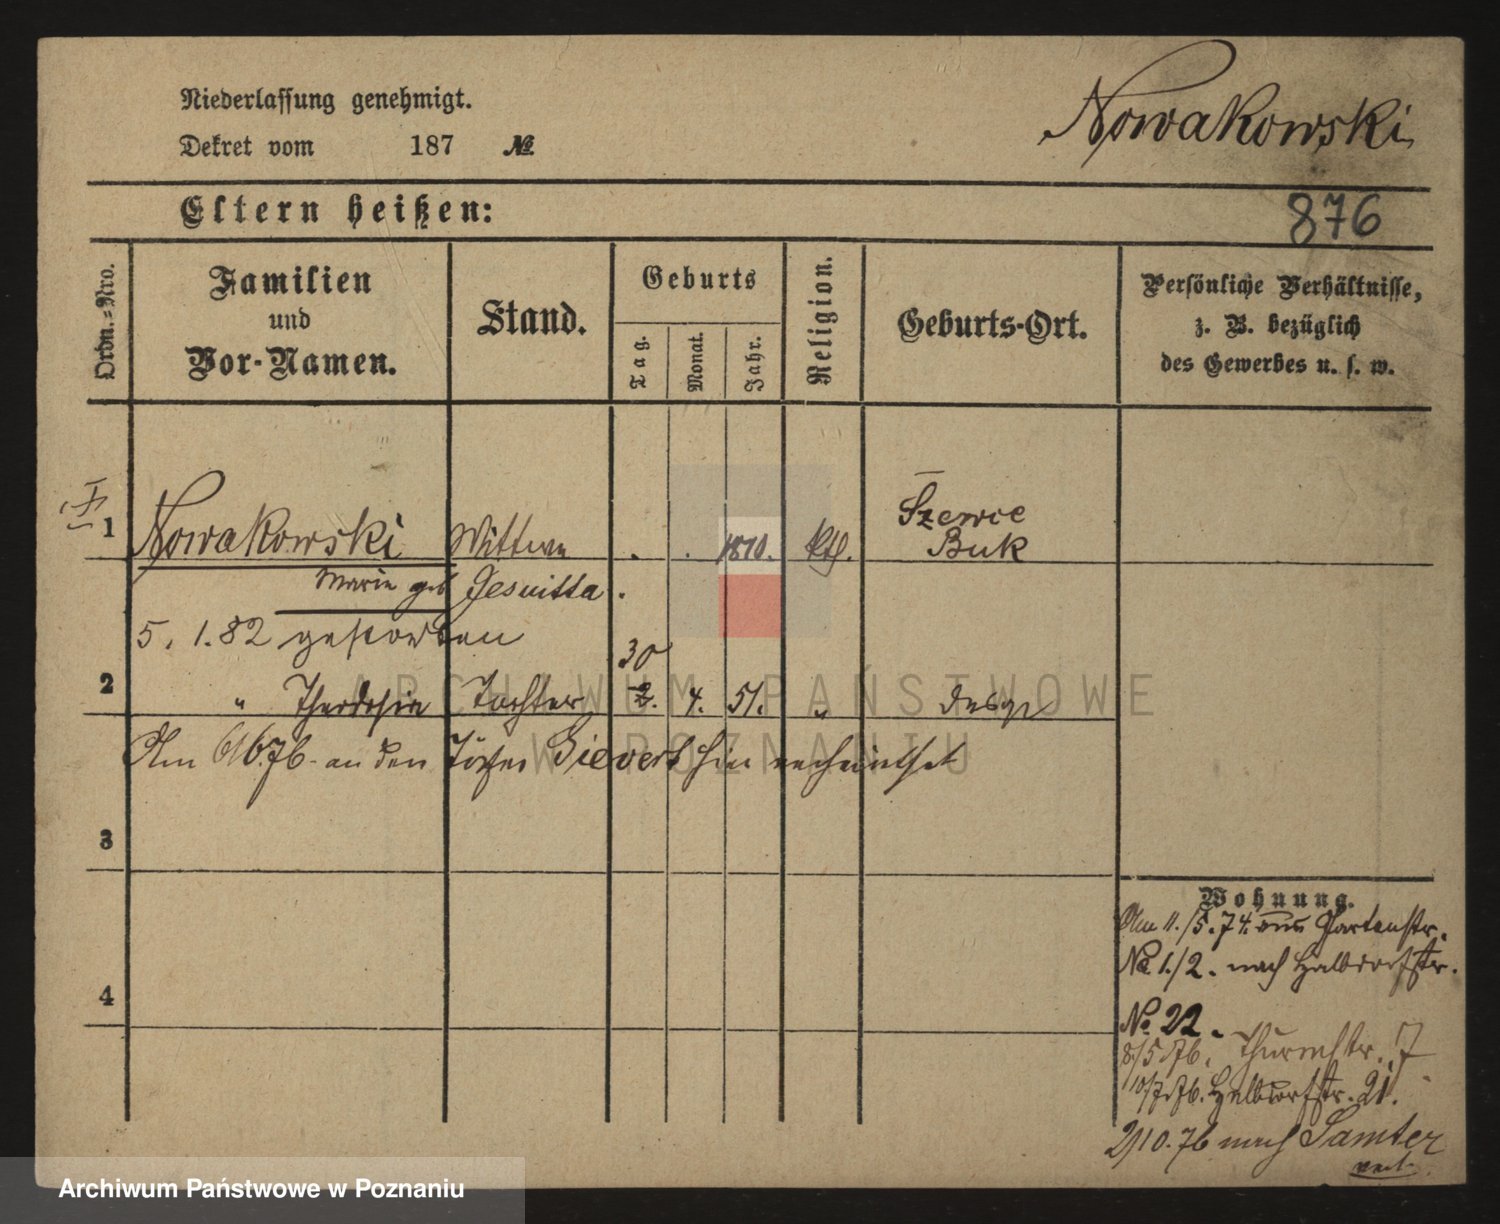 Niederlassung genehmigt.
Nowakowski
Dekret vom 187 №
Eltern heißen:
876
Ordn.-Nro.
Familien
und
Vor-Namen.
Stand.
Geburts
Tag.
Monat.
Jahr.
Religion.
Geburts-Ort.
Persönliche Verhältnisse,
z. B. bezüglich
des Gewerbes u. s. w.
1 Nowakowski Wittwe . . 1810. kth. Szewce
Buk
Marie geb Jesuitta.
5. 1. 82 gestorben
30
2 " Theodosia Tochter 2. 4. 51. " desgl
Am 6/6.76. an den Töpfer Sievert hier verheirathet
3
4
Wohnung.
Am 11./5.74. aus Gartenstr.
No 1./2. nach Halbdorfstr.
No. 22.
8/5.76. Thurmstr. 7
10/7.76. Halbdorfstr. 21.
2/10.76 nach Samter
ARCHIWUM PAŃSTWOWE
W POZNANIU
Archiwum Państwowe w Poznaniu